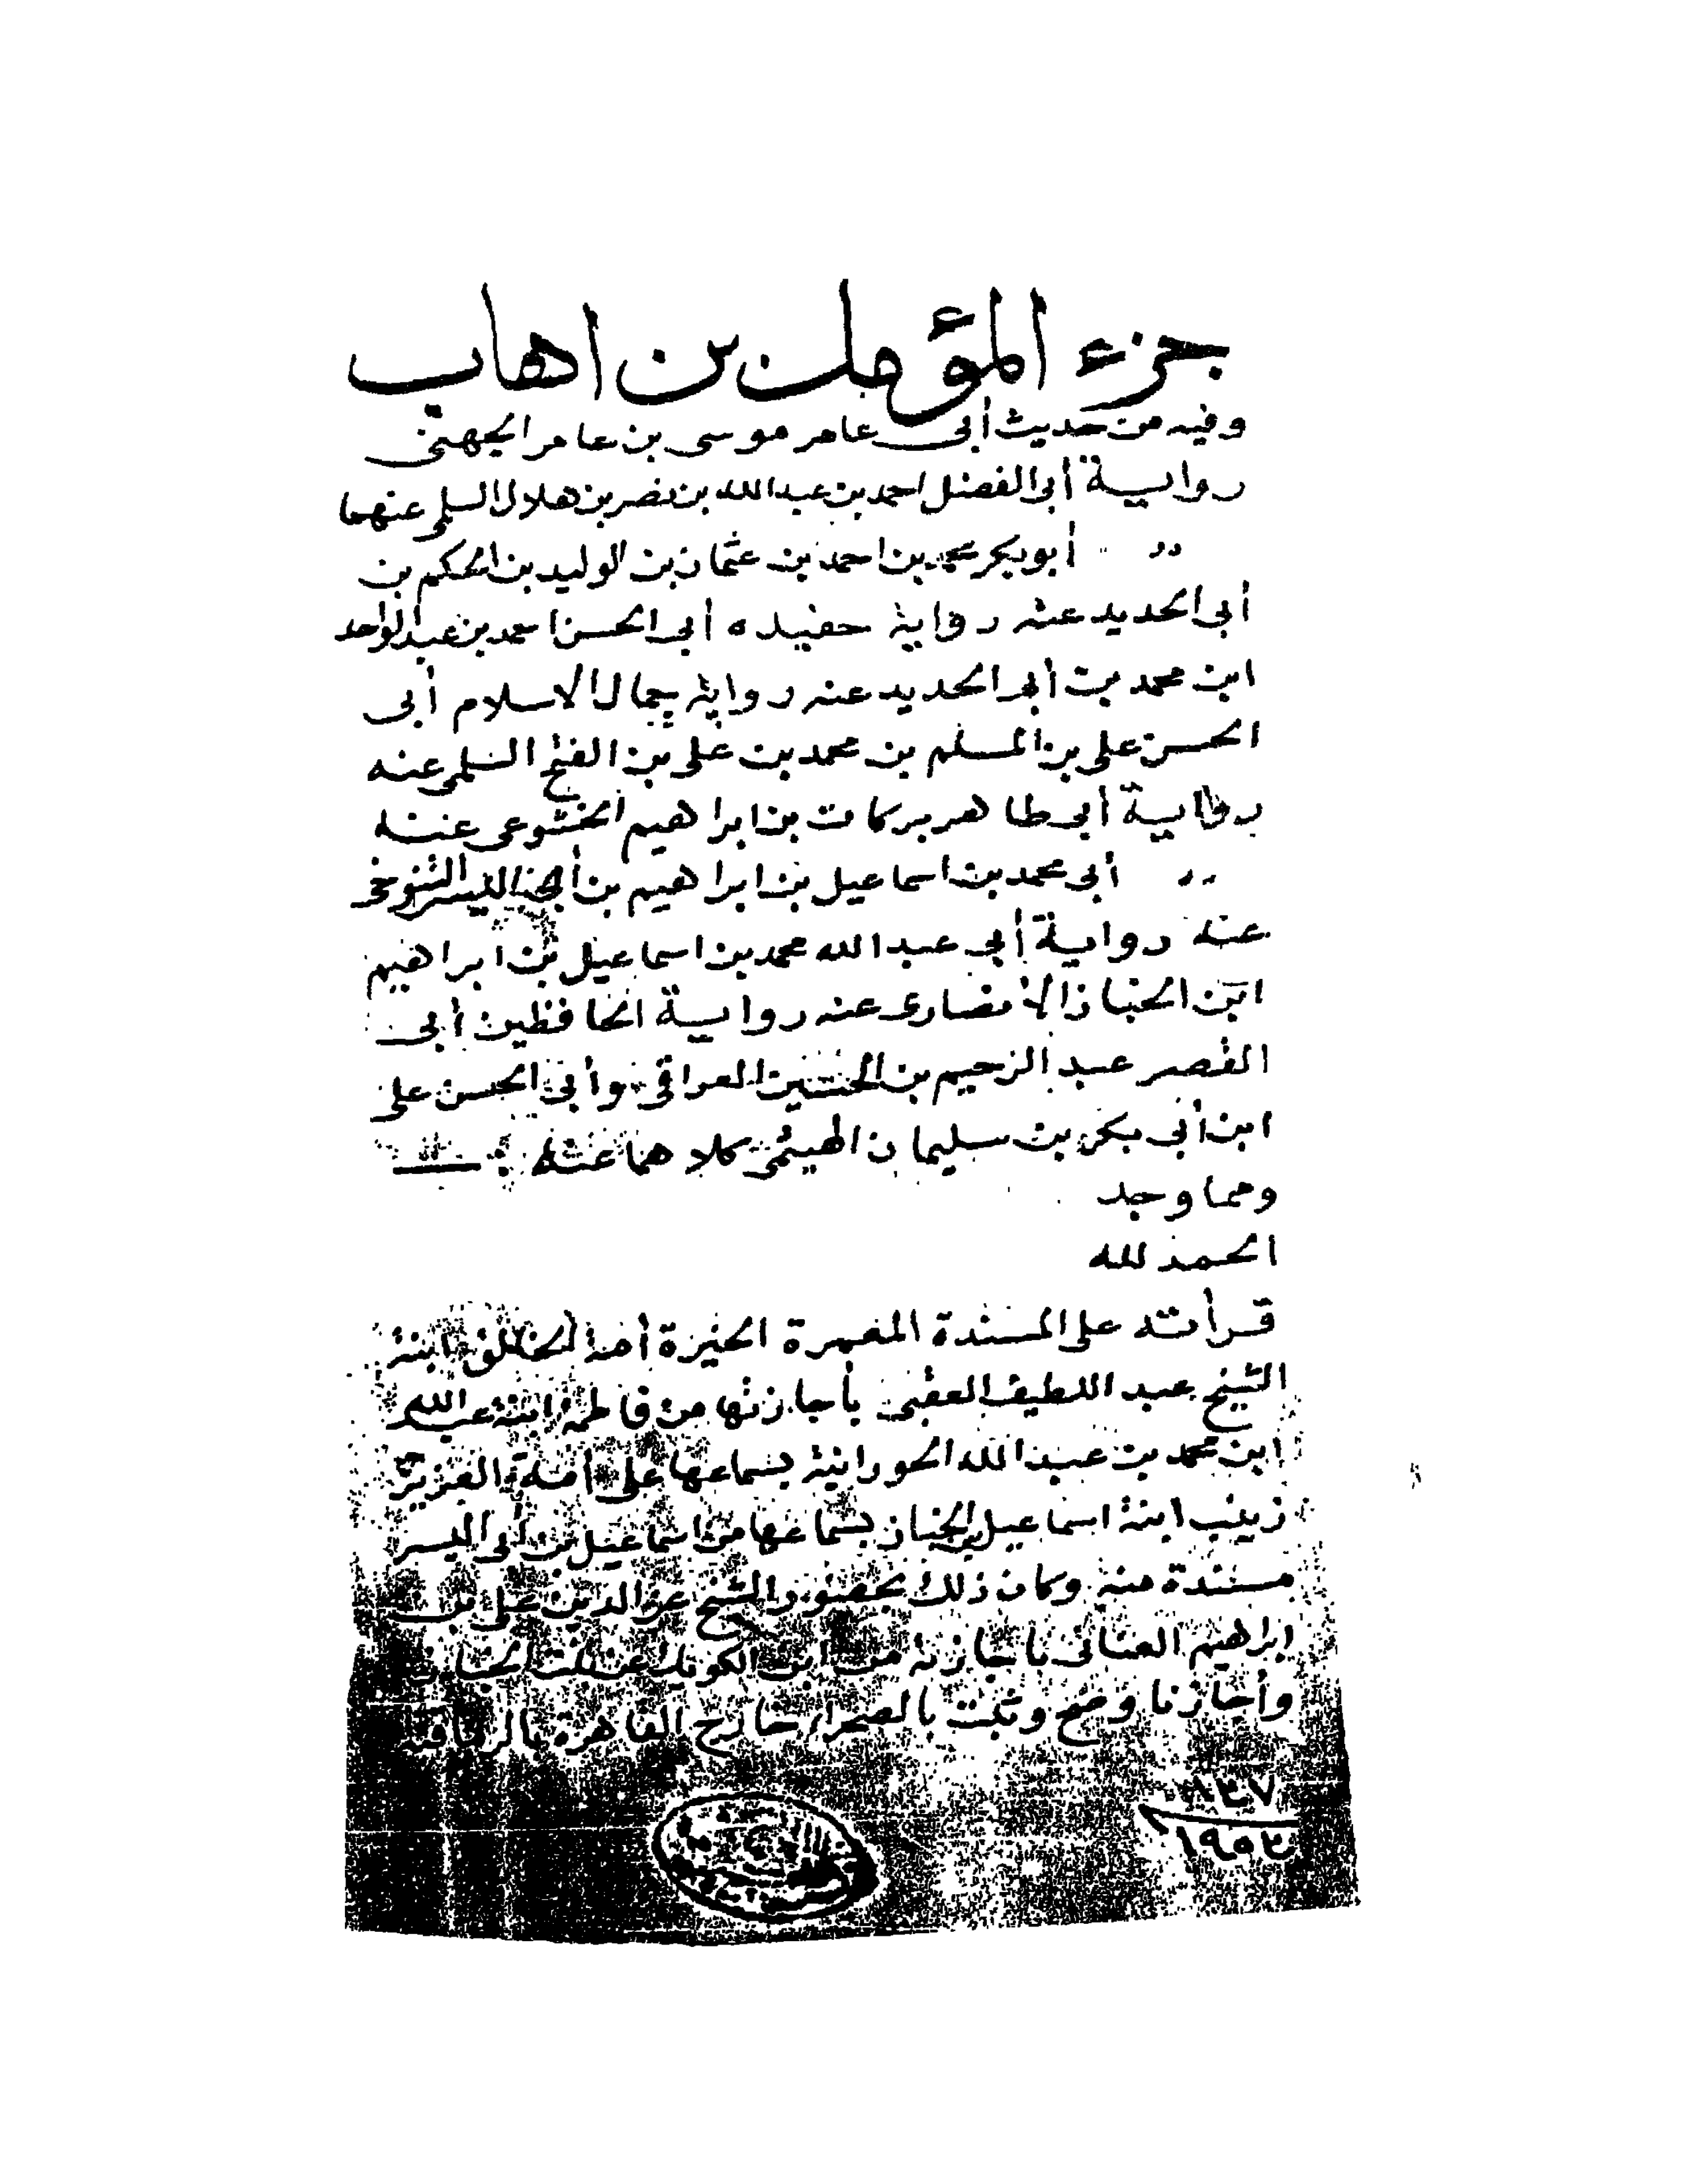 جزء المؤمل بن اهاب
وفيه من حديث أبي عامر موسى بن عامر الجهني
رواية أبي الفضل احمد بن عبدالله بن نصر بن هلال السلمي عنهما
״ ״ أبو بكر محمد بن احمد بن عثمان بن الوليد بن الحكم بن
أبي الحديد عنه رواية حفيده أبي الحسن احمد بن عبدالواحد
ابن محمد بن أبي الحديد عنه رواية جمال الاسلام أبي
الحسن علي بن المسلم بن محمد بن علي بن الفتح السلمي عنه
رواية أبي طاهر بركات بن ابراهيم الخشوعي عنه
״ ״ أبي محمد بن اسماعيل بن ابراهيم بن أبي اليسر التنوخي
عنه رواية أبي عبد الله محمد بن اسماعيل بن ابراهيم
ابن الخباز الانصاري عنه رواية الحافظين أبي
الفضر عبد الرحيم بن الحسين العراقي وأبي الحسن علي
ابن أبي بكر بن سليمان الهيثمي كلاهما عنه
ومما وجد
الحمد لله
قرأته على المسندة المعمرة الخيرة أمة الخالق ابنة
الشيخ عبد اللطيف العقبي بأجازتها من فاطمة ابنة عبد الله
ابن محمد بن عبد الله الحورانية بسماعها على أمة العزيز
زينب ابنة اسماعيل بن الخباز بسماعها من اسماعيل بن أبي اليسر
مسندة منه وكان ذلك بحضور الشيخ عز الدين علي بن
ابراهيم العناني باجازته من ابن الكويك عن بنت الخباز
وأجازنا وصح وثبت بالصحراء خارج القاهرة
١٣٧
١٩٥٢